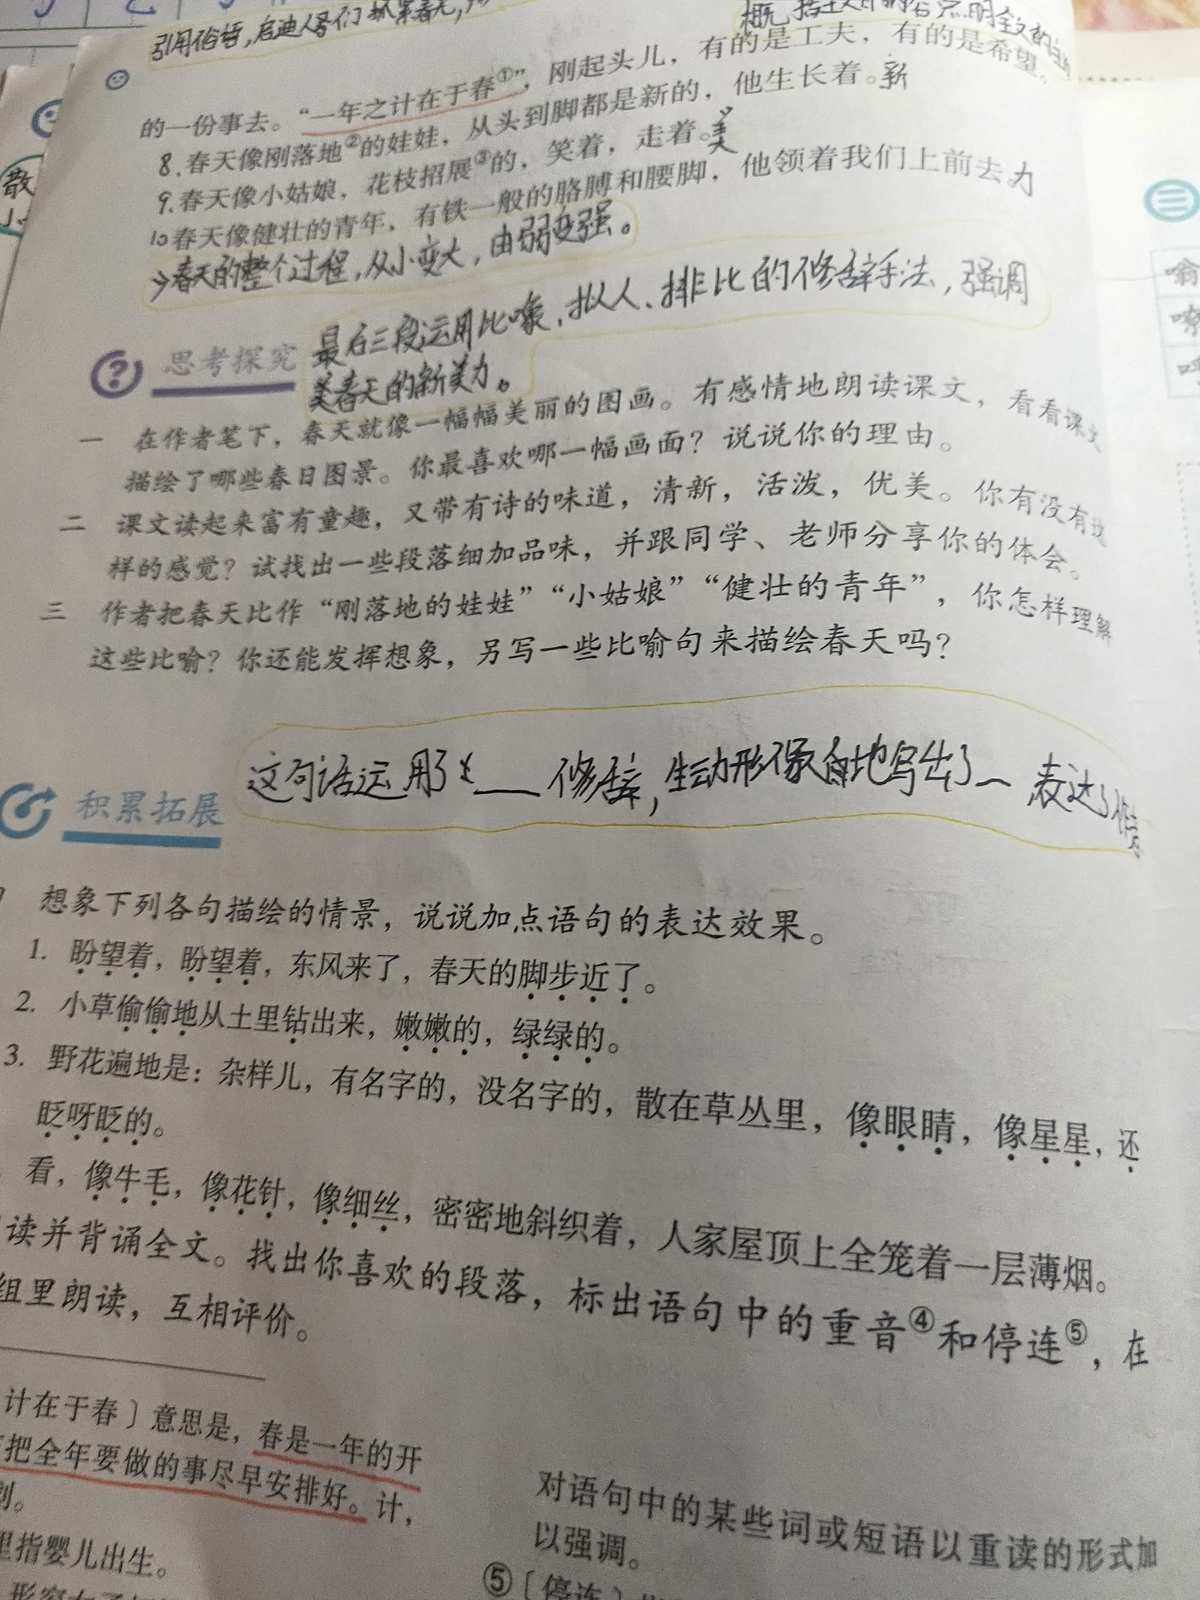 引用俗语，启迪人们抓紧春光，
概括全文
的一份事去。“一年之计在于春①”，刚起头儿，有的是工夫，有的是希望。
8.春天像刚落地②的娃娃，从头到脚都是新的，他生长着。新
9.春天像小姑娘，花枝招展③的，笑着，走着。美
10春天像健壮的青年，有铁一般的胳膊和腰脚，他领着我们上前去力
→春天的整个过程，从小变大，由弱变强。
最后三段运用比喻、拟人、排比的修辞手法，强调
思考探究
美春天的新美力。
一 在作者笔下，春天就像一幅幅美丽的图画。有感情地朗读课文，看看课文
描绘了哪些春日图景。你最喜欢哪一幅画面？说说你的理由。
二 课文读起来富有童趣，又带有诗的味道，清新，活泼，优美。你有没有这
样的感觉？试找出一些段落细加品味，并跟同学、老师分享你的体会。
三 作者把春天比作“刚落地的娃娃”“小姑娘”“健壮的青年”，你怎样理解
这些比喻？你还能发挥想象，另写一些比喻句来描绘春天吗？
这句话运用了 ___ 修辞，生动形象自地写出了— 表达了作者
积累拓展
想象下列各句描绘的情景，说说加点语句的表达效果。
1. 盼望着，盼望着，东风来了，春天的脚步近了。
2. 小草偷偷地从土里钻出来，嫩嫩的，绿绿的。
3. 野花遍地是：杂样儿，有名字的，没名字的，散在草丛里，像眼睛，像星星，还
眨呀眨的。
看，像牛毛，像花针，像细丝，密密地斜织着，人家屋顶上全笼着一层薄烟。
读并背诵全文。找出你喜欢的段落，标出语句中的重音④和停连⑤，在
组里朗读，互相评价。
计在于春〕意思是，春是一年的开
把全年要做的事尽早安排好。计，
划。
里指婴儿出生。
对语句中的某些词或短语以重读的形式加
以强调。
⑤〔停连〕